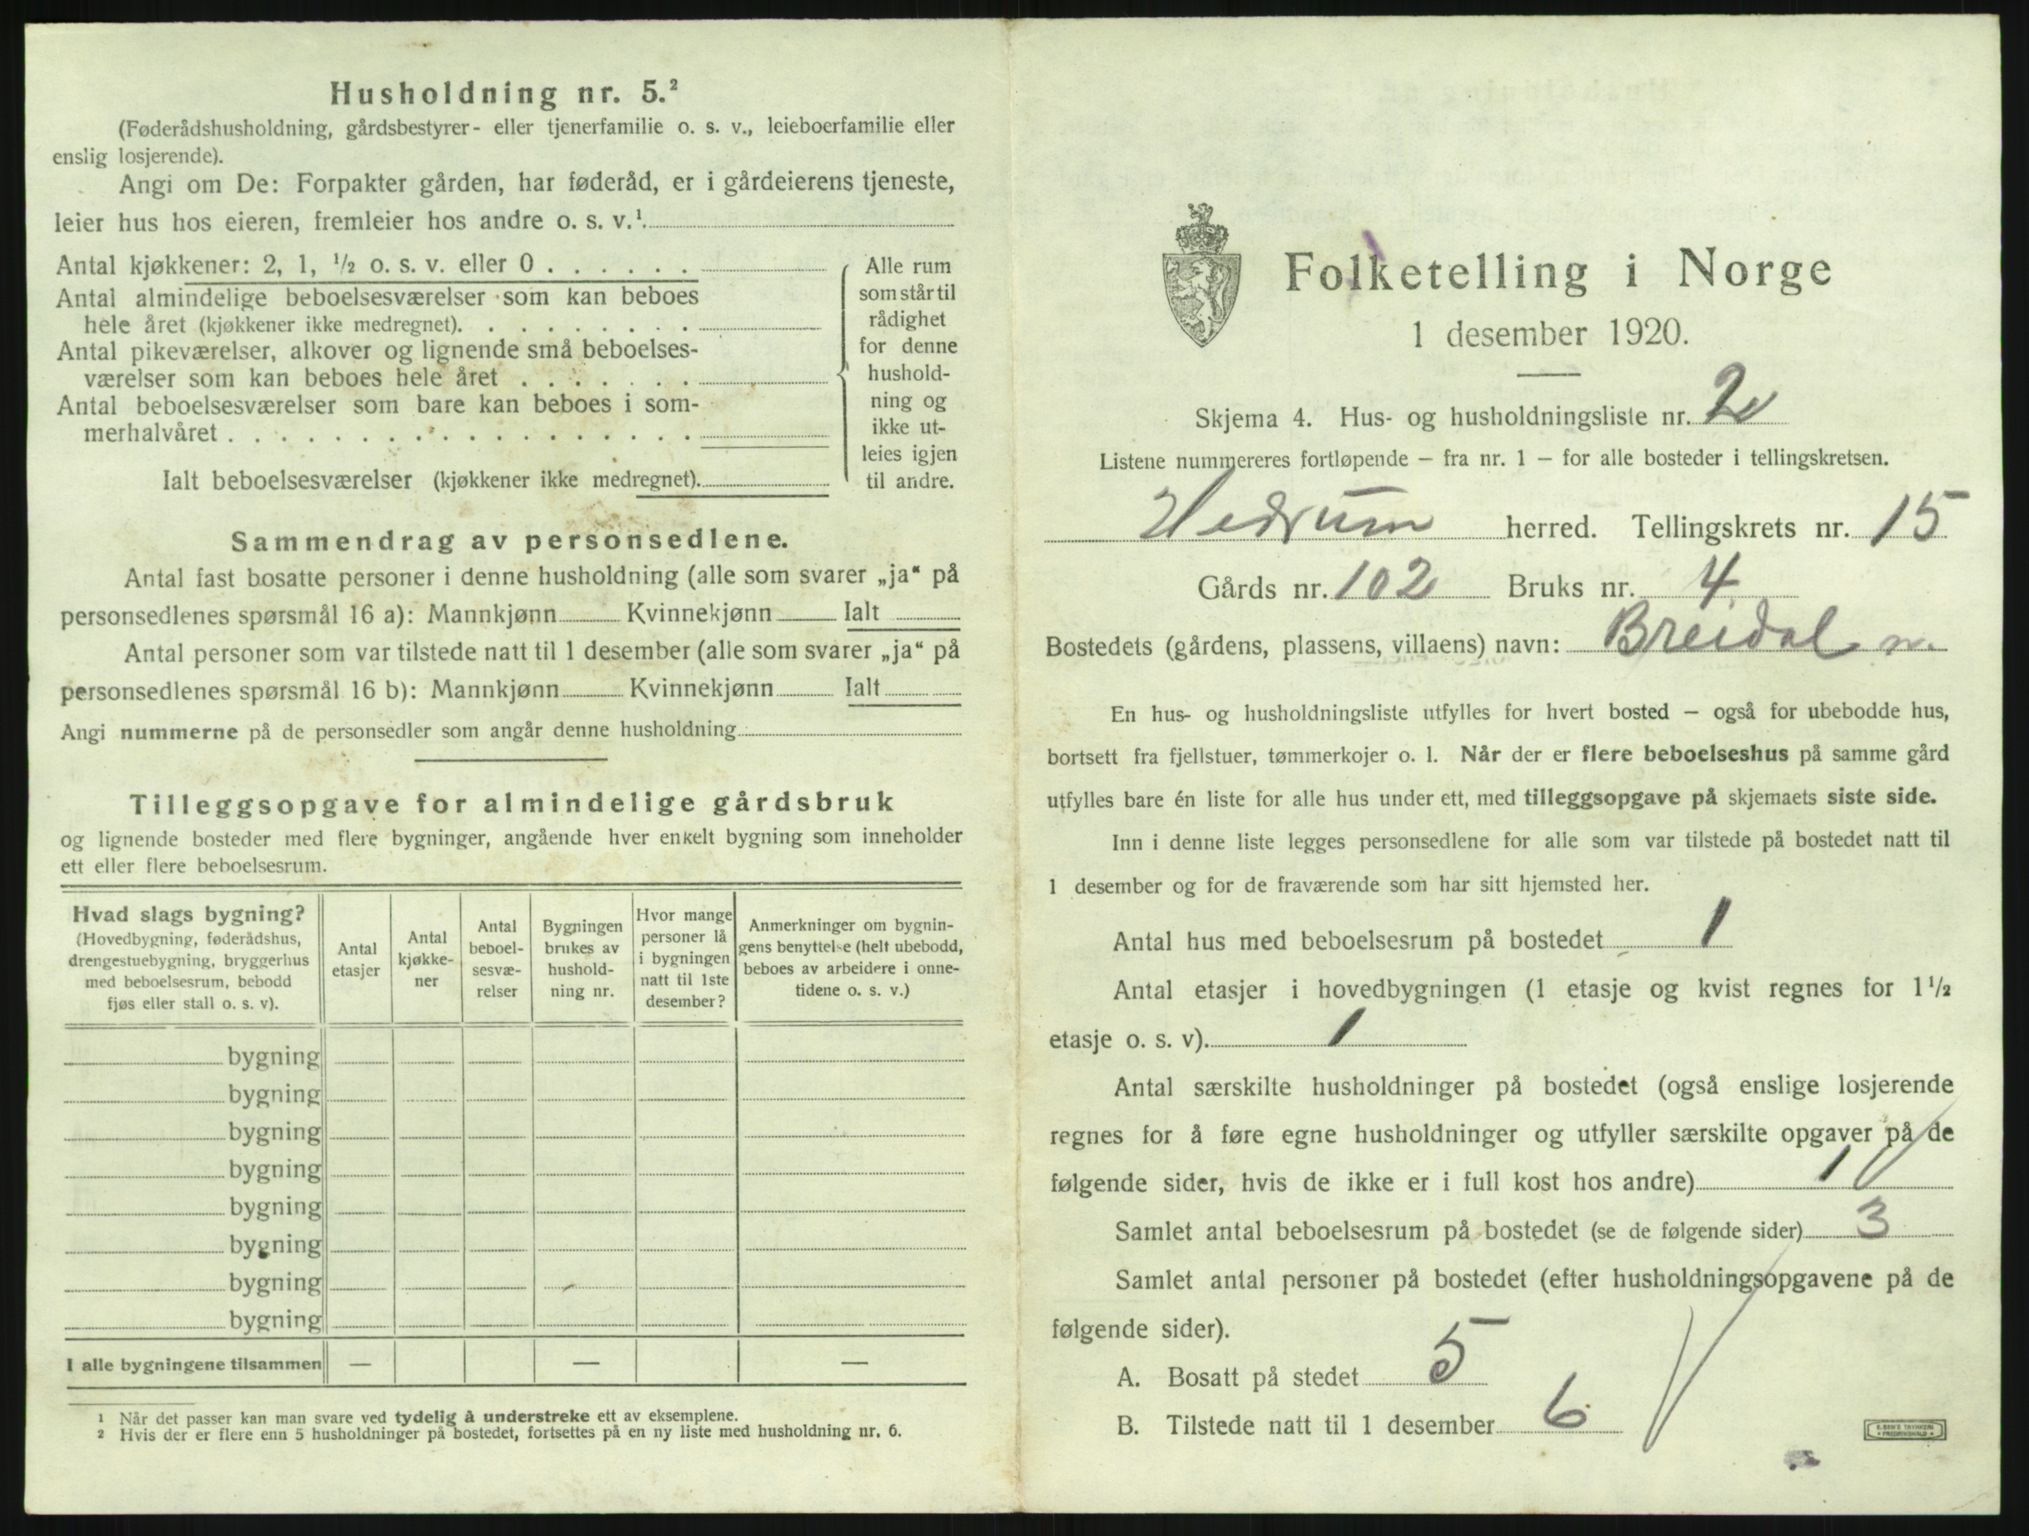 Husholdning nr. 5.²
(Føderådshusholdning, gårdsbestyrer- eller tjenerfamilie o. s. v., leieboerfamilie eller
enslig losjerende).
Angi om De: Forpakter gården, har føderåd, er i gårdeierens tjeneste,
leier hus hos eieren, fremleier hos andre o. s. v.¹
Antal kjøkkener: 2, 1, ½ o. s. v. eller 0 . . . . . .
Antal almindelige beboelsesværelser som kan beboes
hele året (kjøkkener ikke medregnet). . . . . . . . .
Antal pikeværelser, alkover og lignende små beboelses-
værelser som kan beboes hele året . . . . . . .
Antal beboelsesværelser som bare kan beboes i som-
merhalvåret . . . . . . . . . . . . . . . . . .
Ialt beboelsesværelser (kjøkkener ikke medregnet).
Alle rum
som står til
rådighet
for denne
hushold-
ning og
ikke ut-
leies igjen
til andre.
Sammendrag av personsedlene.
Antal fast bosatte personer i denne husholdning (alle som svarer „ja“ på
personsedlenes spørsmål 16 a): Mannkjønn Kvinnekjønn Ialt
Antal personer som var tilstede natt til 1 desember (alle som svarer „ja“ på
personsedlenes spørsmål 16 b): Mannkjønn Kvinnekjønn Ialt
Angi nummerne på de personsedler som angår denne husholdning
Tilleggsopgave for almindelige gårdsbruk
og lignende bosteder med flere bygninger, angående hver enkelt bygning som inneholder
ett eller flere beboelsesrum.
Hvad slags bygning?
(Hovedbygning, føderådshus,
drengestuebygning, bryggerhus
med beboelsesrum, bebodd
fjøs eller stall o. s. v).
Antal
etasjer
Antal
kjøkke-
ner
Antal
beboel-
sesvæ-
relser
Bygningen
brukes av
hushold-
ning nr.
Hvor mange
personer lå
i bygningen
natt til 1ste
desember?
Anmerkninger om bygnin-
gens benyttelse (helt ubebodd,
beboes av arbeidere i onne-
tidene o. s. v.)
bygning
bygning
bygning
bygning
bygning
bygning
bygning
bygning
I alle bygningene tilsammen — — —
¹ Når det passer kan man svare ved tydelig å understreke ett av eksemplene.
² Hvis der er flere enn 5 husholdninger på bostedet, fortsettes på en ny liste med husholdning nr. 6.
Folketelling i Norge
1 desember 1920.
Skjema 4. Hus- og husholdningsliste nr. 2
Listene nummereres fortløpende – fra nr. 1 – for alle bosteder i tellingskretsen.
Hedrum herred. Tellingskrets nr. 15
Gårds nr. 102 Bruks nr. 4
Bostedets (gårdens, plassens, villaens) navn: Breidal n.
En hus- og husholdningsliste utfylles for hvert bosted – også for ubebodde hus,
bortsett fra fjellstuer, tømmerkojer o. l. Når der er flere beboelseshus på samme gård
utfylles bare én liste for alle hus under ett, med tilleggsopgave på skjemaets siste side.
Inn i denne liste legges personsedlene for alle som var tilstede på bostedet natt til
1 desember og for de fraværende som har sitt hjemsted her.
Antal hus med beboelsesrum på bostedet 1
Antal etasjer i hovedbygningen (1 etasje og kvist regnes for 1½
etasje o. s. v). 1
Antal særskilte husholdninger på bostedet (også enslige losjerende
regnes for å føre egne husholdninger og utfyller særskilte opgaver på de
følgende sider, hvis de ikke er i full kost hos andre) 1
Samlet antal beboelsesrum på bostedet (se de følgende sider) 3
Samlet antal personer på bostedet (efter husholdningsopgavene på de
følgende sider).
A. Bosatt på stedet 5
B. Tilstede natt til 1 desember 6